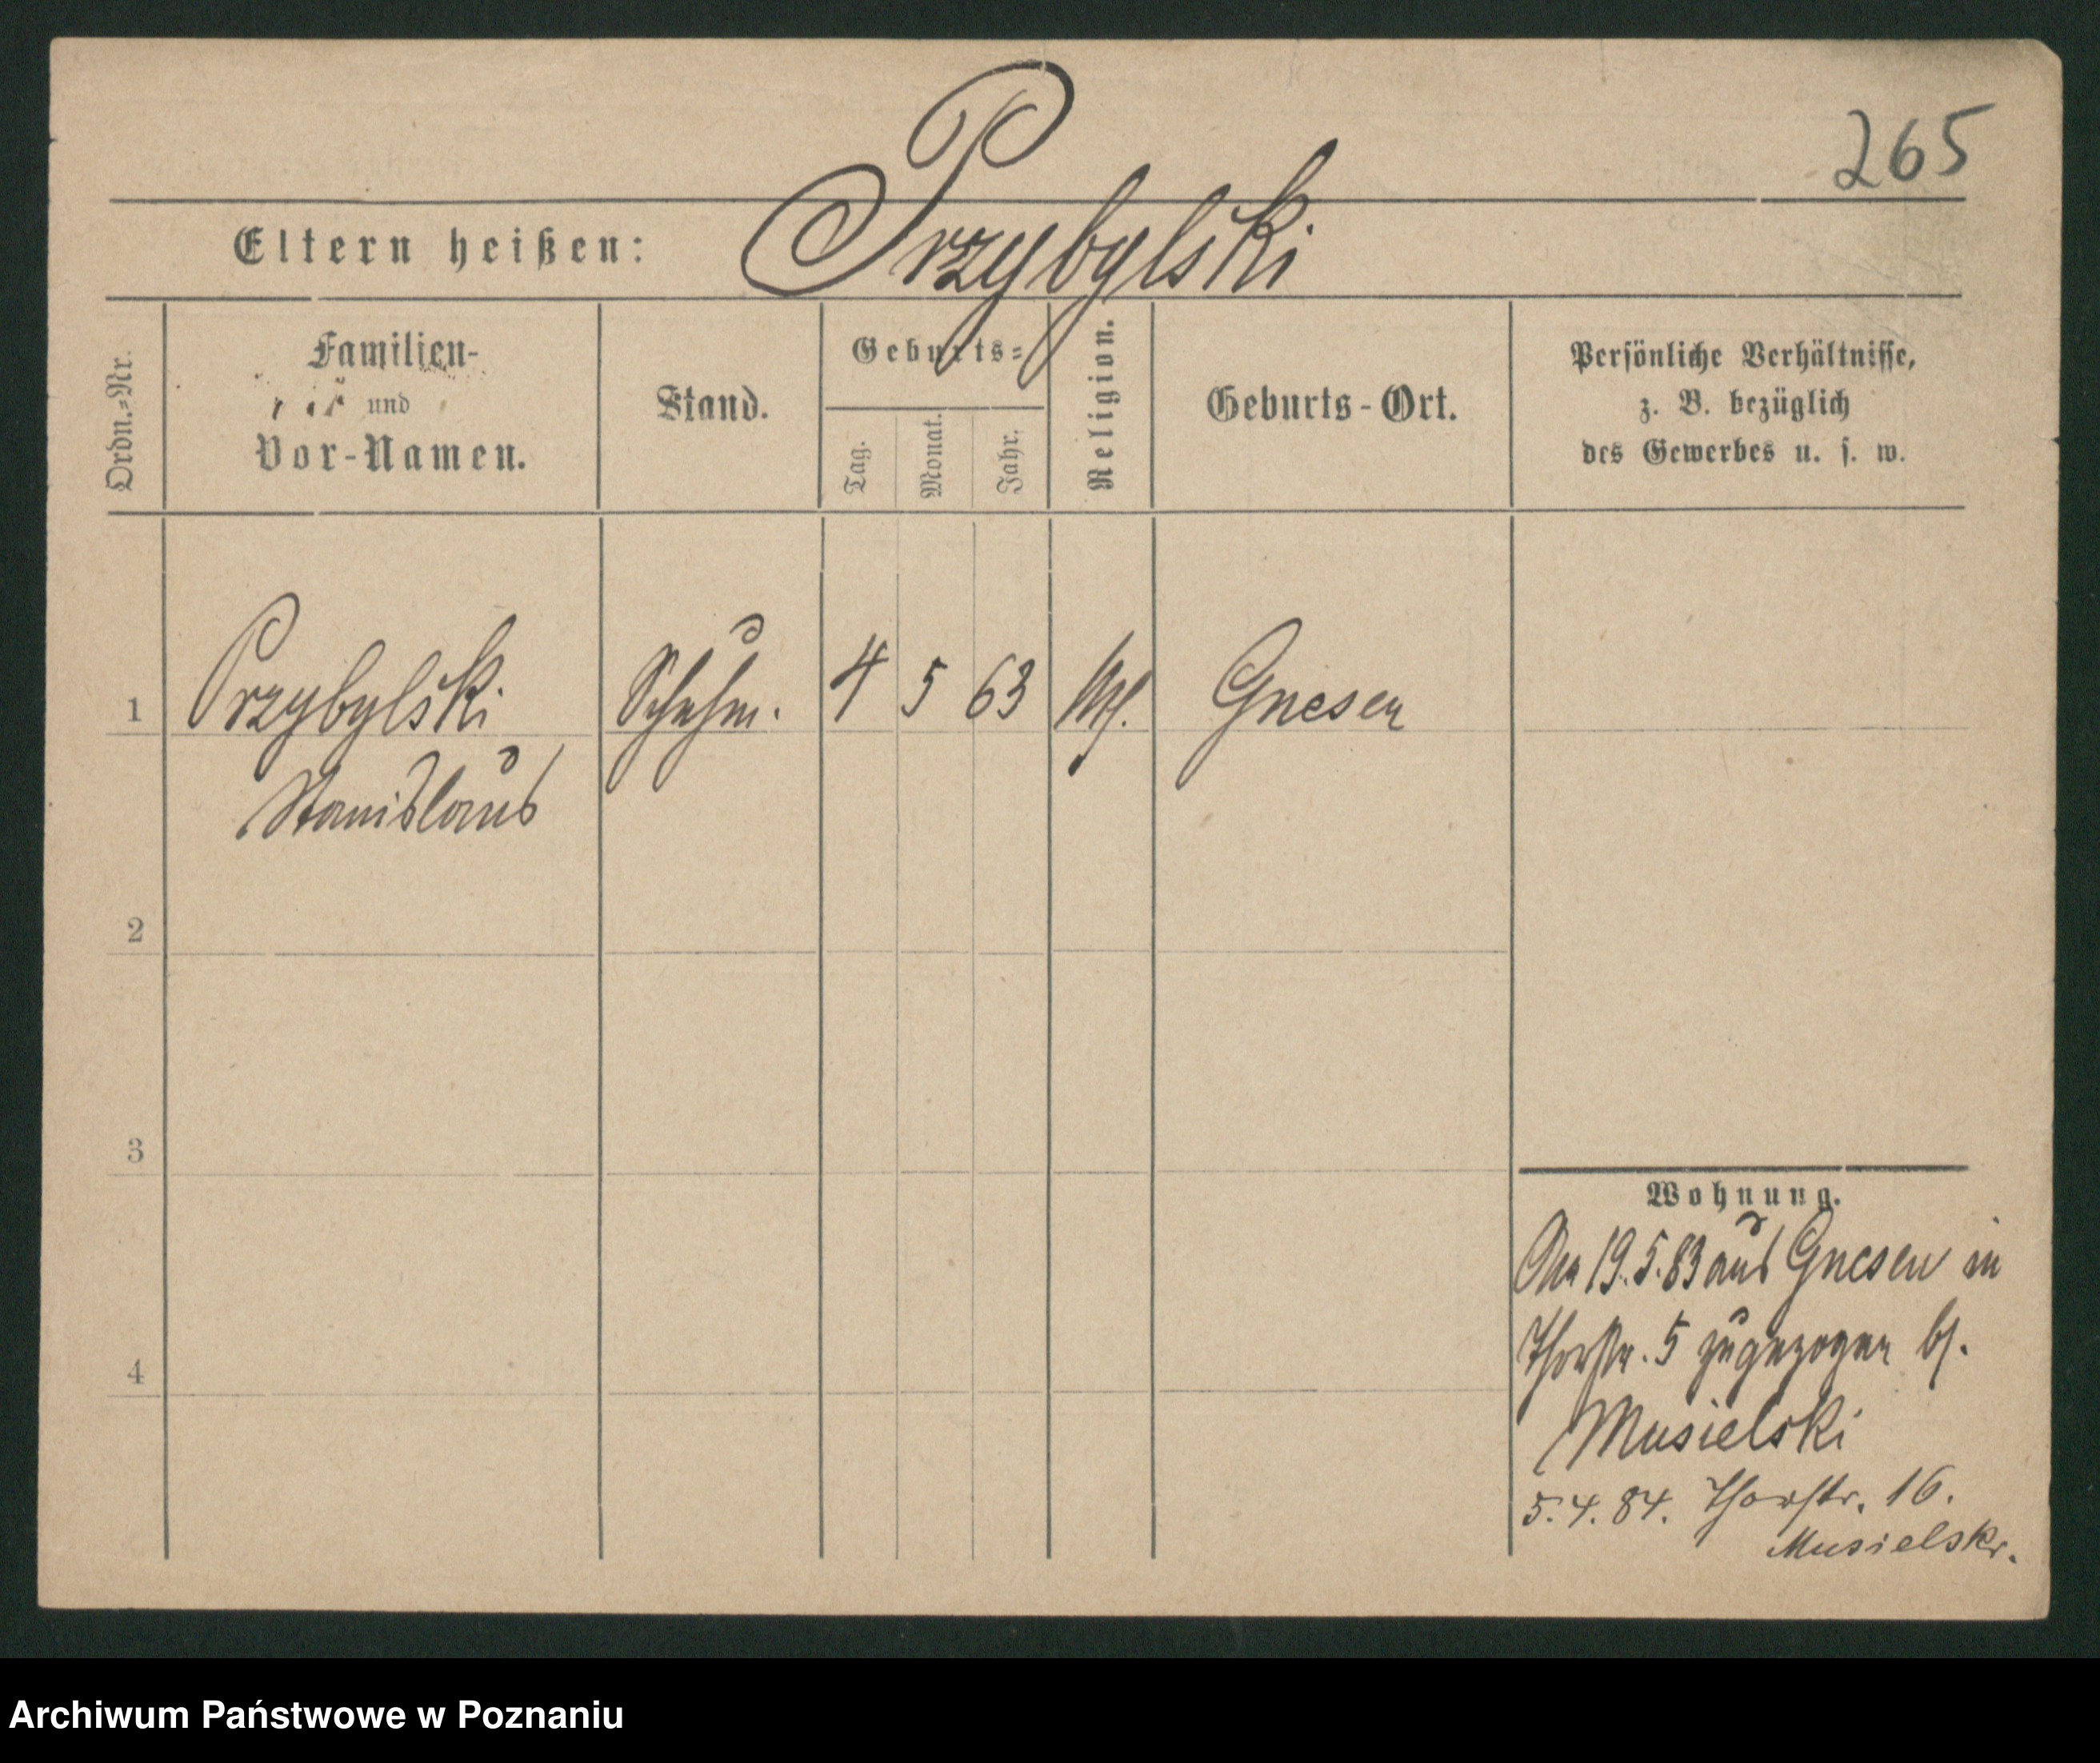 265
Przybylski
Eltern heißen:
Ordn.=Nr.
Familien-
und
Vor-Namen.
Stand.
Geburts=
Tag.
Monat.
Jahr.
Religion.
Geburts-Ort.
Persönliche Verhältnisse,
z. B. bezüglich
des Gewerbes u. s. w.
1 Przybylski Schuhm. 4 5 63 Gnesen
Stanislaus
2
3
4
Wohnung.
Am 19.5.83 aus Gnesen in
Thorstr. 5 zugezogen b/.
Musielski
5.4.84. Thorstr. 16.
Musielski.
Archiwum Państwowe w Poznaniu